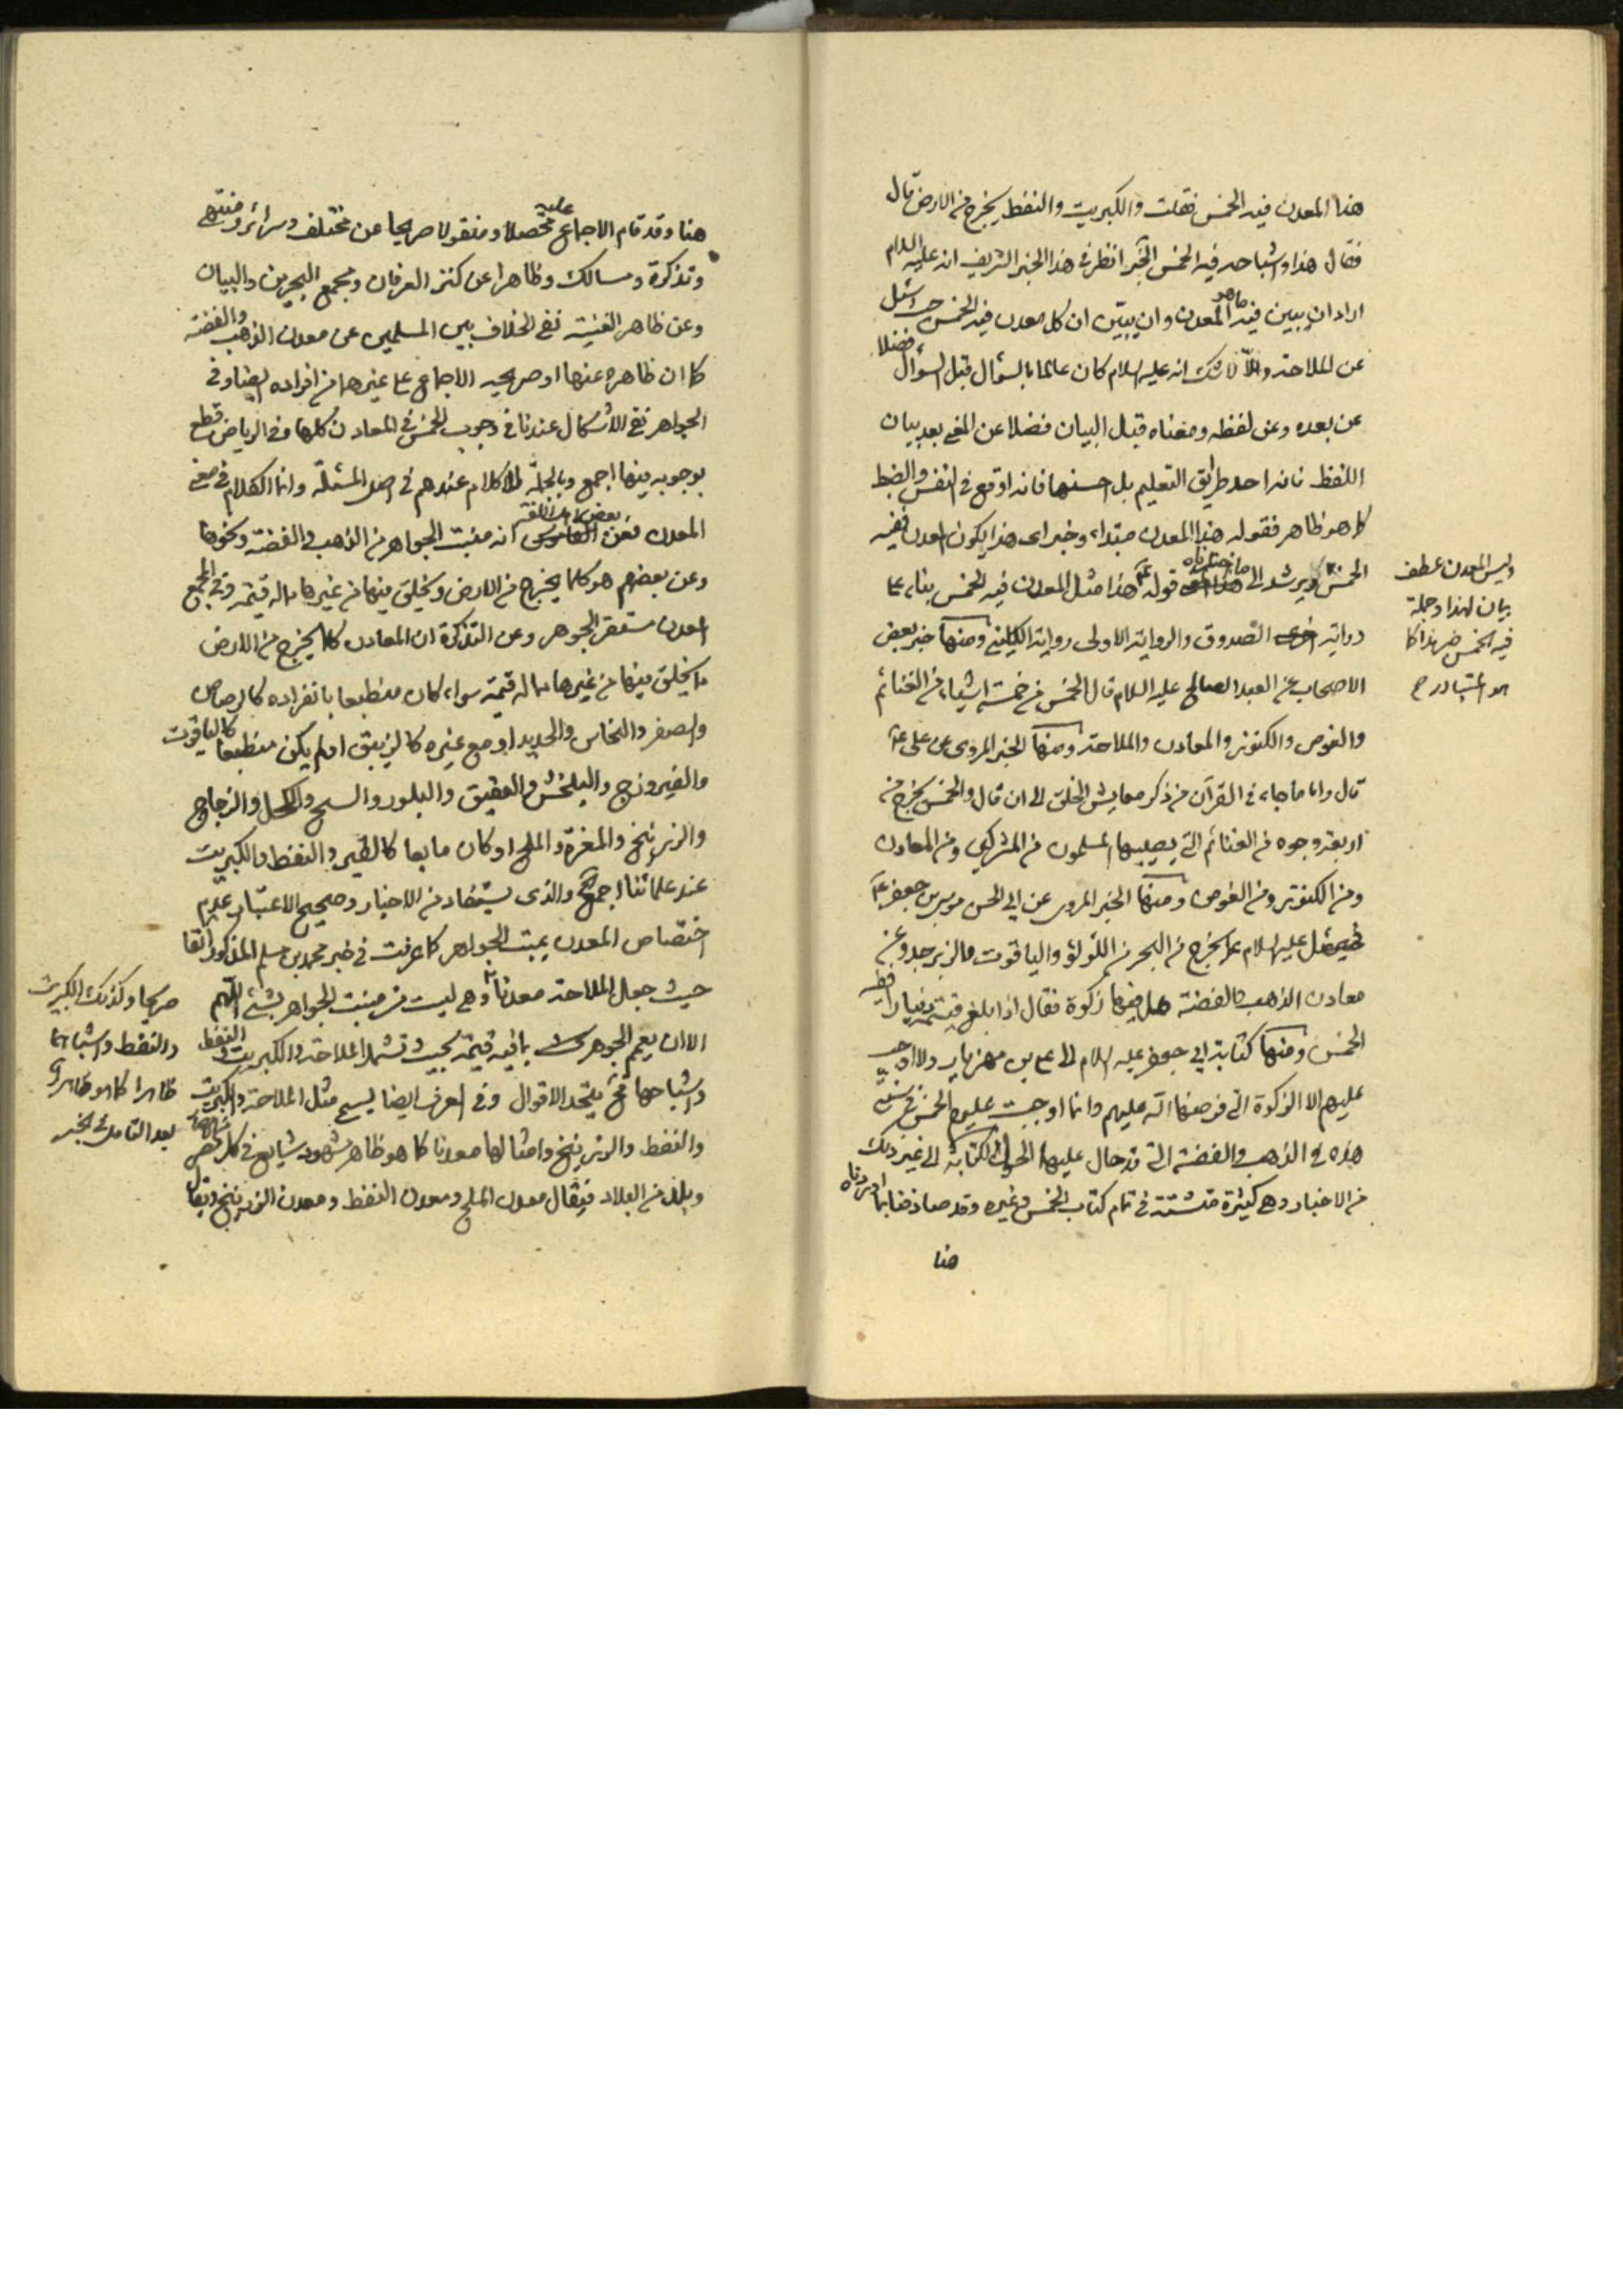 هذا المعدن فيه الخمس فقلت والكبريت والنفط يخرج من الارض قال
فقال هذا واشباهه فيه الخمس الخبر انظر في هذا الخبر الشريف انه عليه السلام
اراد ان يبين فيه ما هو المعدن وان يبين ان كل معدن فيه الخمس حيث سئل
عن الملاحة والا لا شك انه عليه السلام كان عالما بالسؤال قبل السؤال فضلا
عن بعده وعن لفظه ومعناه قبل البيان فضلا عن المعنى بعد بيان
اللفظ فانه احد طرائق التعليم بل احسنها فانه اوقع في النفس والضبط
كما هو ظاهر فقوله هذا المعدن مبتداء وخبر اى هذا يكون المعدن ففيه
الخمس ويرشد الى ما اخترناه قوله هذا مثل المعدن فيه الخمس بناء على
رواية الصدوق والرواية الاولى رواية الكليني ومنها خبر بعض
الاصحاب عن العبد الصالح عليه السلام قال الخمس من خمسة اشياء من الغنائم
والغوص والكنوز والمعادن والملاحة ومنها الخبر المروى عن على ع
قال واما ما جاء في القرآن من ذكر معايش الخلق الى ان قال والخمس يخرج من
اربعة وجوه من الغنائم التي يصيبها المسلمون من المشركين ومن المعادن
ومن الكنوز ومن الغوص ومنها الخبر المروى عن ابى الحسن موسى بن جعفر ع
سئل عليه السلام عما يخرج من البحر من اللؤلؤ والياقوت والزبرجد وعن
معادن الذهب والفضة هل فيها زكوة فقال اذا بلغ قيمته دينارا ففيه
الخمس ومنها كتابة ابى جعفر عليه السلام الى على بن مهزيار ولا اوجب
عليهم الا الزكوة التي فرضها الله عليهم وانما اوجبت عليهم الخمس في سنتى
هذه في الذهب والفضة التي قد حال عليها الحول الكتابة الى غير ذلك
من الاخبار وهي كثيرة متشتتة في تمام كتاب الخمس وغيره وقد صار فيما اوردناه
هنا
وليس المعدن عطف
بيان لهذا وجملة
فيه الخمس خبر هذا كما
هو المتبادر
هنا وقد قام الاجماع عليه محصلا ومنقولا صريحا عن مختلف وسرائر ومنتهى
وتذكرة ومسالك وظاهرا عن كنز العرفان ومجمع البحرين والبيان
وعن ظاهر الغنية نفى الخلاف بين المسلمين عن معدن الذهب والفضة
كما ان ظاهره عنها او صريحه الاجماع على غيرهما من افراده ايضا وفي
الجواهر نفى الاشكال عندنا في وجوب الخمس في المعادن كلها وفي الرياض قطع
بوجوبه فيها اجمع وبالجملة لا كلام عندهم في اصل المسئلة وانما الكلام في معنى
المعدن فعن القاموس بعض اهل اللغة انه منبت الجواهر من الذهب والفضة ونحوها
وعن بعضهم هو كلما يخرج من الارض ويخلق فيها من غيرها مما له قيمة وفي المجمع
المعدن مستقر الجوهر وعن التذكرة ان المعادن كلما يخرج من الارض
مما يخلق فيها من غيرها مما له قيمة سواء كان منطبعا بانفراده كالرصاص
والصفر والنحاس والحديد او مع غيره كالزيبق او لم يكن منطبعا كالياقوت
والفيروزج والبلخش والعقيق والبلور والسبج والكحل والزجاج
والزرنيخ والمغرة والملح او كان مايعا كالقير والنفط والكبريت
عند علمائنا اجمع والذى يستفاد من الاخبار وصحيح الاعتبار عدم
اختصاص المعدن بمنبت الجواهر كما عرفت في خبر محمد بن مسلم المذكور آنفا
حيث جعل الملاحة معدنا وهي ليست من منبت الجواهر بشئ اللهم
الا ان يعمم الجوهر بما فيه قيمة بحيث تشمل الملاحة والكبريت والنفط
واشباهها فح يتحد الاقوال وفي العرف ايضا يسمى مثل الملاحة والكبريت
والنفط والزرنيخ وامثالها معدنا كما هو ظاهر مشهود شايع في كل عصر
وبلد من البلاد فيقال معدن الملح ومعدن النفط ومعدن الزرنيخ ويقال
صريحا وكذلك الكبريت
والنفط واشباهها
ظاهرا كما هو ظاهر
بعد التامل في الخبر